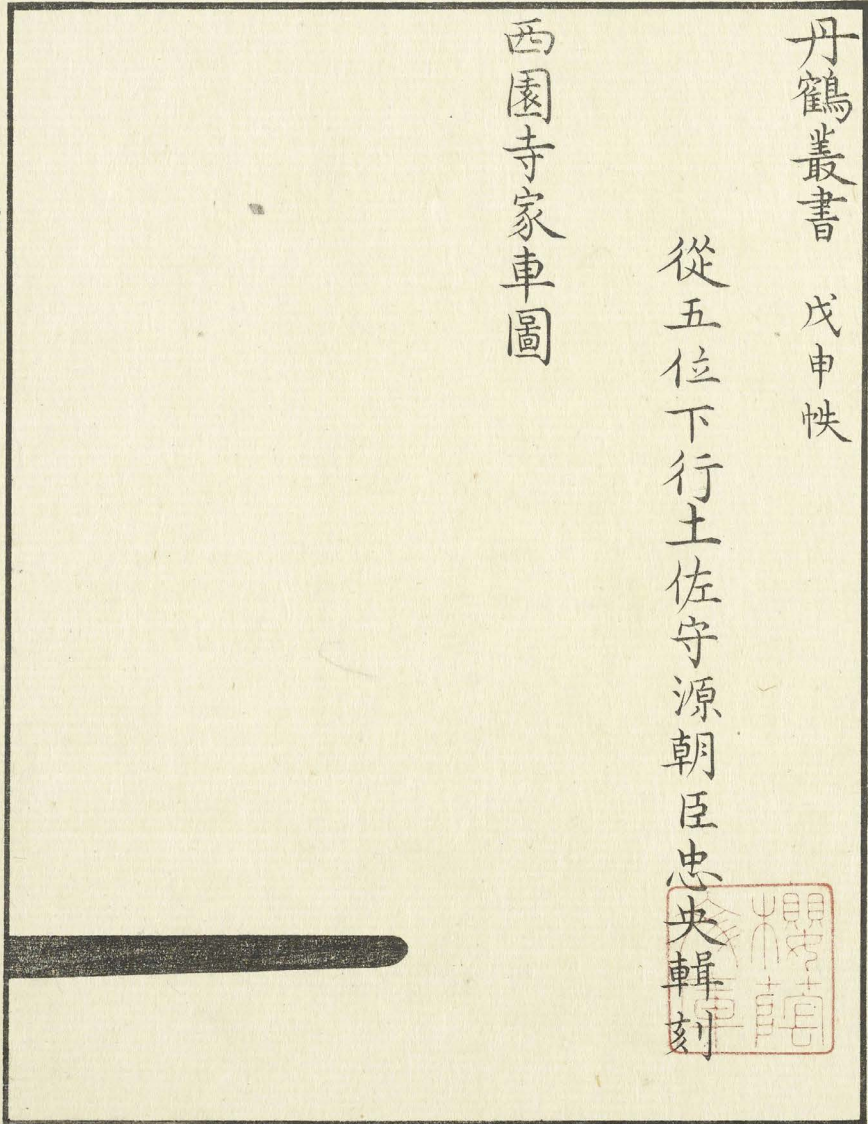 丹鶴叢書　戊申帙
從五位下行土佐守源朝臣忠央輯刻
西園寺家車圖